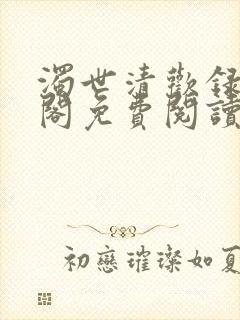 濁世清歡錄
閣免費閱讀
初戀璀璨如夏